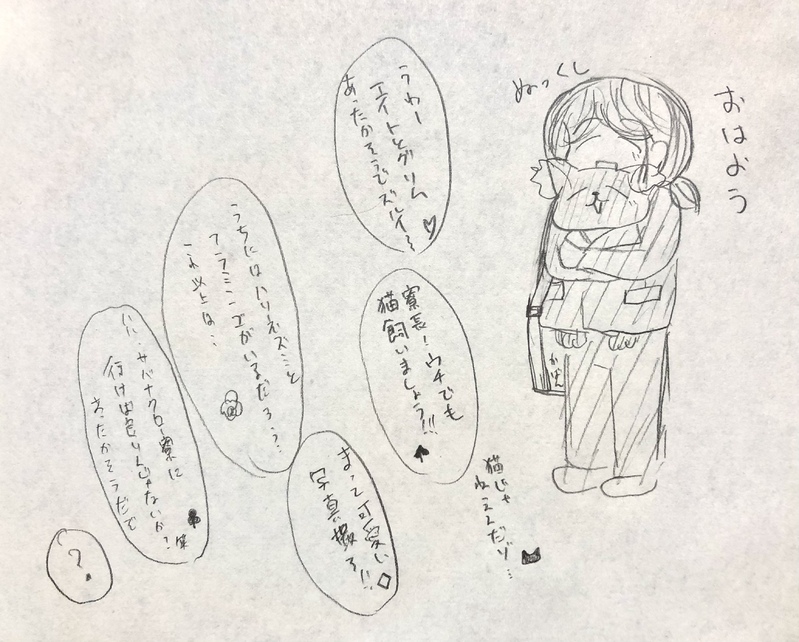 おはよう
ぬっくし
かばん
うわー
エイトとグリム
あったかそうでズルイ~♡
寮長!ウチでも
猫飼いましょう!!♠
猫じゃ
ねえんだゾ…
うちにはハリネズミと
フラミンゴがいるだろう?…
これ以上は…
まって可愛い
写真撮ろ!!◇
サバナクロー寮に
行けば良いんじゃないか?
あたたかそうだぞ
♣笑
?